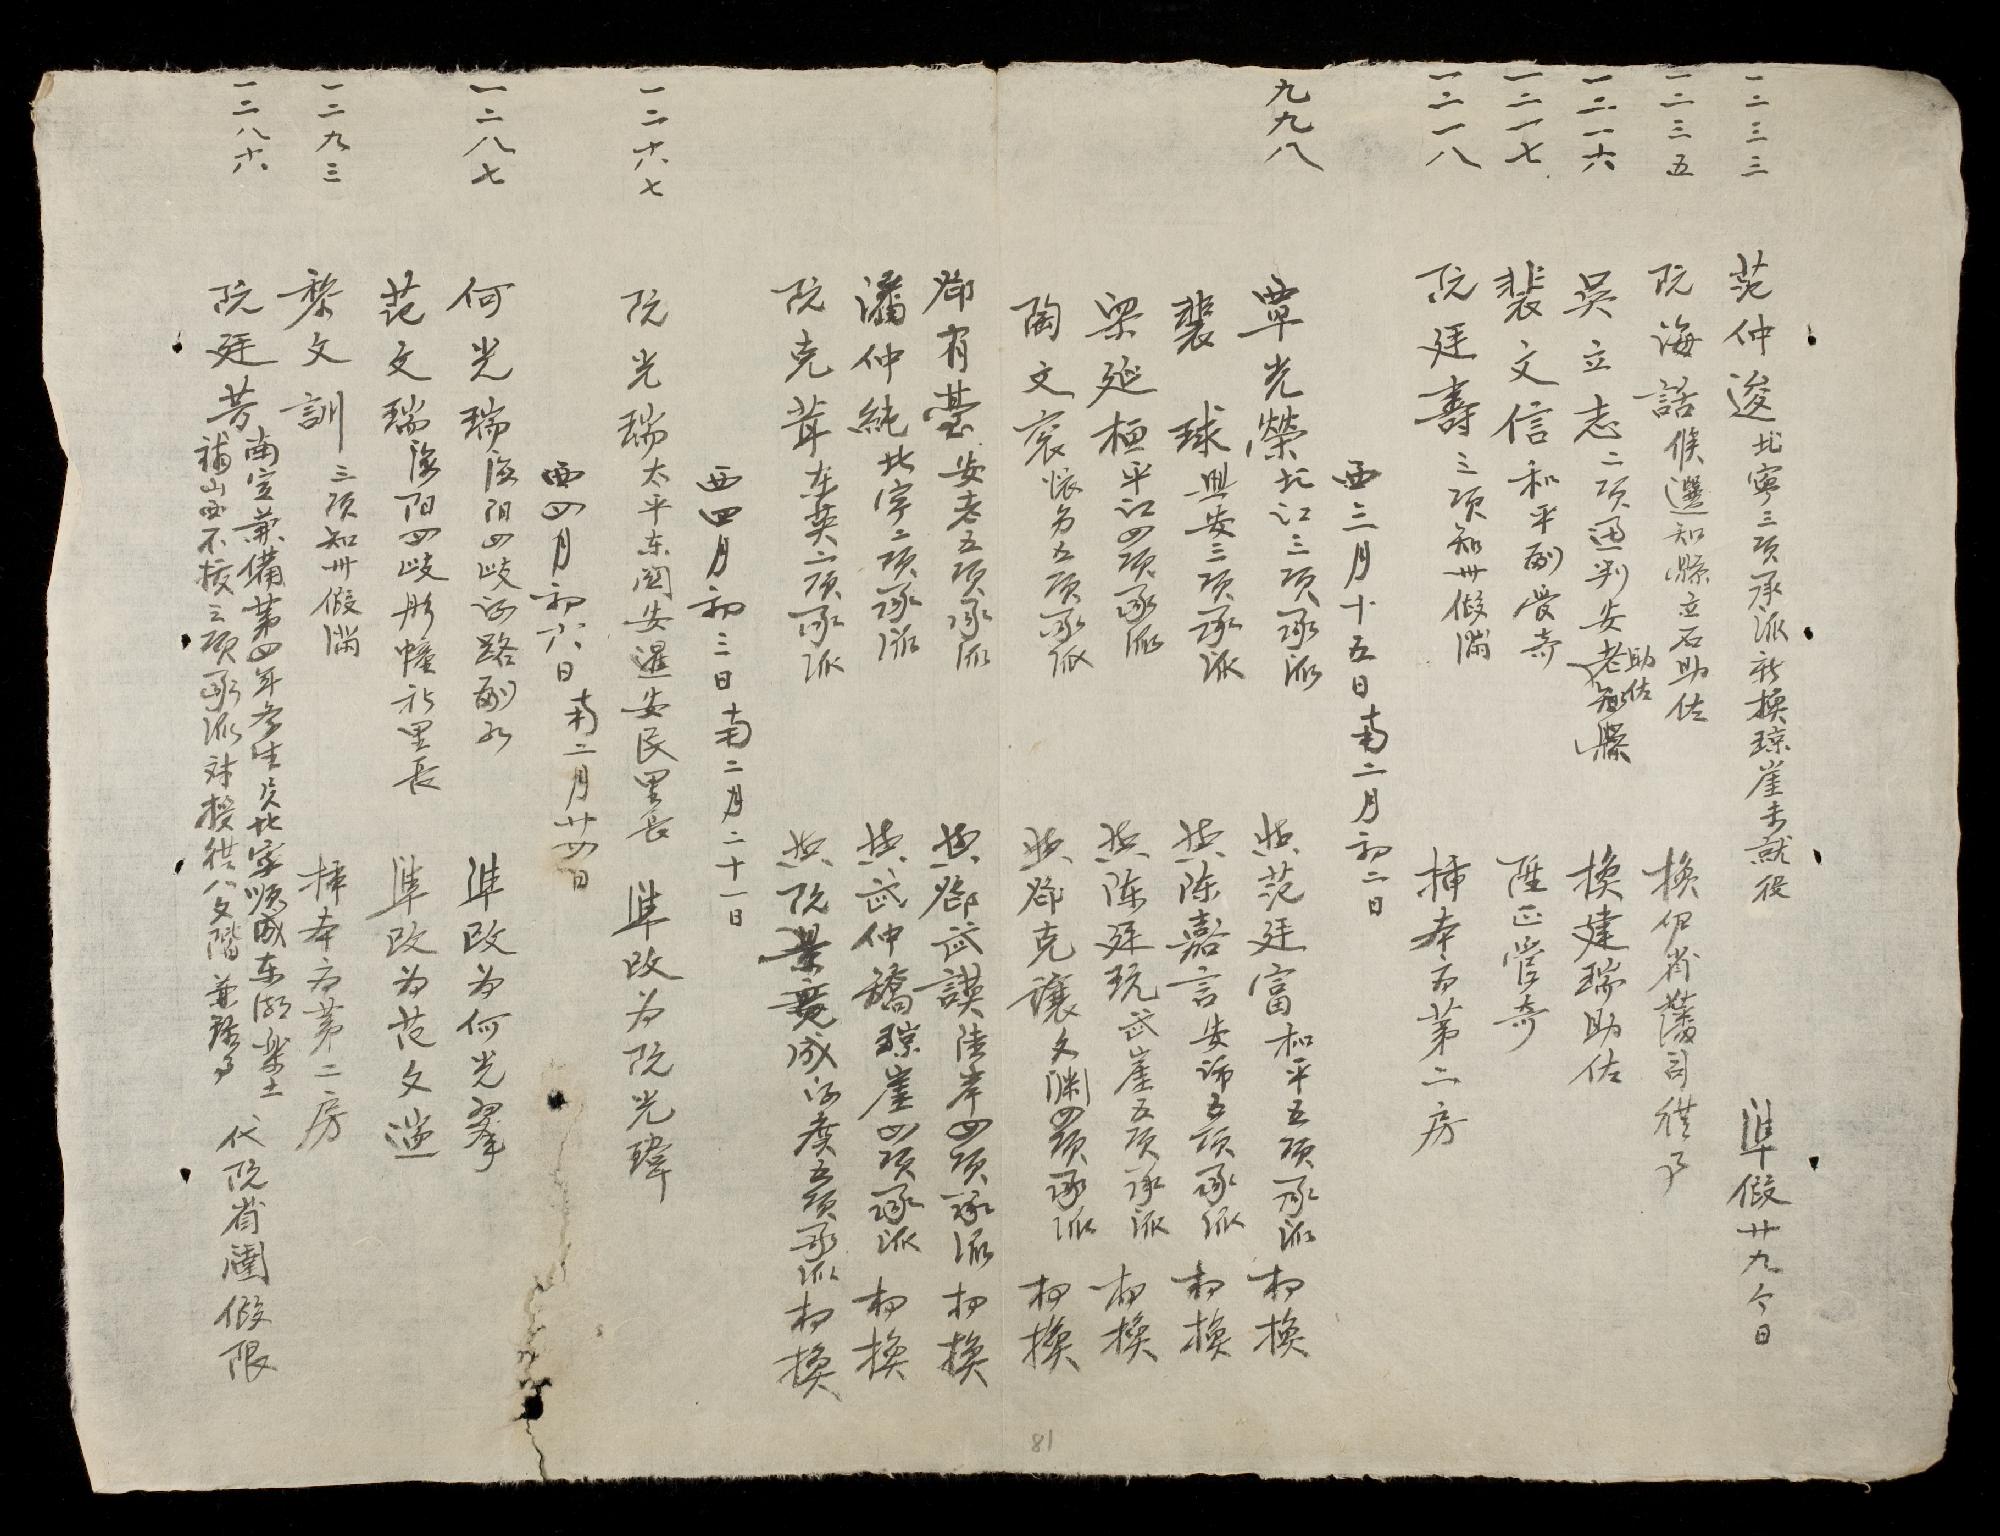 一二三三 范仲逡 北寧三項承派新換瓊崖未就役 準假廿九个日
一二三五 阮海話 候選知縣立石助佐 換伊省藩司供事
一二一六 吳立志 二項通判安老知縣 助佐 換建瑞助佐
一二一七 裴文信 和平副管奇 陞正管奇
一二一八 阮廷壽 三項知州假滿 插本府第二房
西三月十五日南二月初二日
九九八 覃光榮 北江三項承派 與范廷富 和平五項承派 相換
裴球 興安三項承派 與陈嘉言 安沛五項承派 相換
梁延桓 平江四項承派 與陈廷玩 武崖五項承派 相換
陶文衮 懷另五項承派 與鄧克讓 文渊四項承派 相換
鄧有臺 安老五項承派 與鄧武謨 陸岸四項承派 相換
潘仲純 北寧二項承派 與武仲驕 瓊崖四項承派 相換
阮克葺 东英二項承派 與阮景寬 咸河癸五項承派 相換
西四月初三日南二月二十一日
一二六七 阮光瑞 太平东関安暹安民里長 準改为阮光瑋
西四月初六日南二月廿四日
一二八七 何光瑞 海阳四岐 路副 準改为何光翠
范文瑞 海阳四岐彤幢社里長 準改为范文遄
一二九三 黎文訓 三項知州假滿 插本府第二房
一二八六 阮廷芳 南定兼備第四年 北寧順成东湖樂土
補山西不拔三項承派 授供八文階 代阮省園假限
81